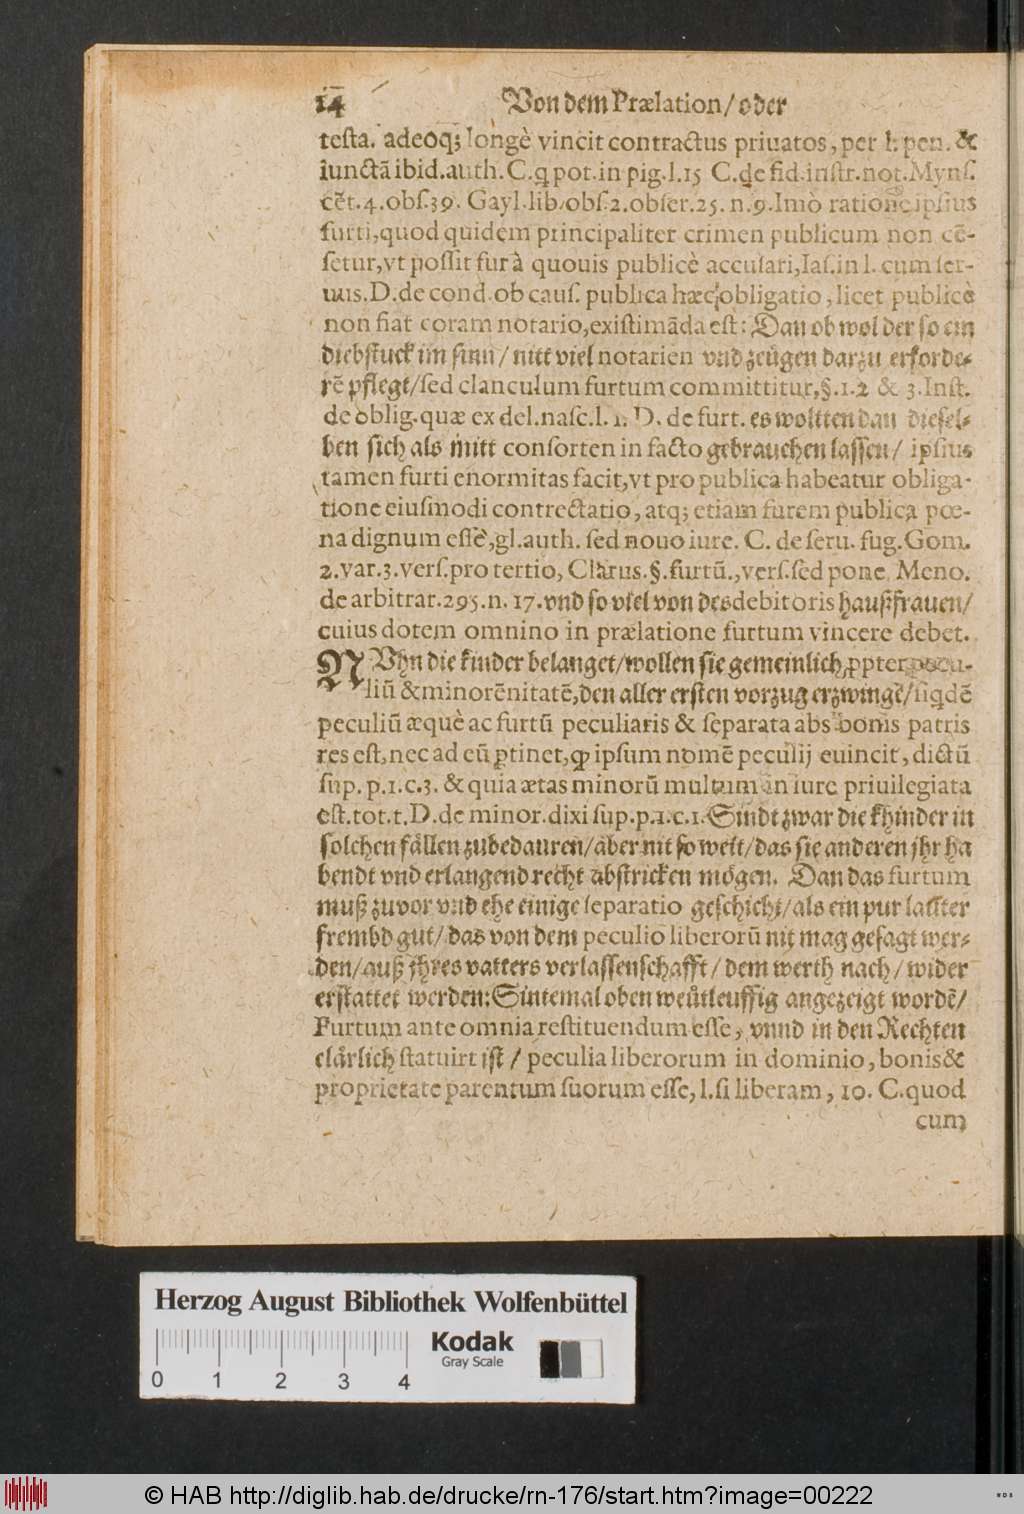 14 Von dem Prælation/ oder
testa. adeoq; longè vincit contractus priuatos, per l. pen. &
iunctā ibid. auth. C. q pot. in pig. l. 15 C. de fid. instr. not. Myns.
cēt. 4. obs. 39. Gayl. lib. obs. 2. obser. 25. n. 9. Imò ratione ipsius
furti, quod quidem principaliter crimen publicum non cē-
setur, vt possit fur à quouis publicè accusari, Ias. in l. cum ser-
uus. D. de cond. ob caus. publica hæc obligatio, licet publicè
non fiat coram notario, existimāda est: Dan ob wol der so ein
diebstuck im sinn/ nitt viel notarien vnd zeügen darzu erforde-
rē pflegt/ sed clanculum furtum committitur, §. 1. 2 & 3. Inst.
de oblig. quæ ex del. nasc. l. 1. D. de furt. es woltten dan diesel-
ben sich als mitt consorten in facto gebrauchen lassen/ ipsius
tamen furti enormitas facit, vt pro publica habeatur obliga-
tione eiusmodi contrectatio, atq; etiam furem publica pœ-
na dignum essè, gl. auth. sed nouo iure. C. de seru. fug. Gom.
2. var. 3. vers. pro tertio, Clarus. §. furtū., vers. sed pone. Meno.
de arbitrar. 295. n. 17. vnd so viel von des debitoris haußfrauen/
cuius dotem omnino in prælatione furtum vincere debet.
NVhn die kinder belanget/ wollen sie gemeinlich, ꝓpter pecu-
liū & minorēnitatē, den aller ersten vorzug erzwingē/ siqdē
peculiū æquè ac furtū peculiaris & separata abs bonis patris
res est, nec ad eū ꝑtinet, ꝙ ipsum nomē peculij euincit, dictū
sup. p. 1. c. 3. & quia ætas minorū multum in iure priuilegiata
est. tot. t. D. de minor. dixi sup. p. 1. c. 1. Sindt zwar die khinder in
solchen fällen zubedauren/ aber nit so weit/ das sie anderen jhr ha
bendt vnd erlangend recht abstricken mögen. Dan das furtum
muß zuvor vnd ehe einige separatio geschicht/ als ein pur lautter
frembd gut/ das von dem peculio liberorū nit mag gesagt wer-
den/ auß jhres vatters verlassenschafft/ dem werth nach/ wider
erstattet werden: Sintemal oben weütleuffig angezeigt wordē/
Furtum ante omnia restituendum esse, vnnd in den Rechten
clärlich statuirt ist/ peculia liberorum in dominio, bonis &
proprietate parentum suorum esse, l. si liberam, 10. C. quod
cum
Herzog August Bibliothek Wolfenbüttel
Kodak
Gray Scale
0 1 2 3 4
© HAB http://diglib.hab.de/drucke/rn-176/start.htm?image=00222